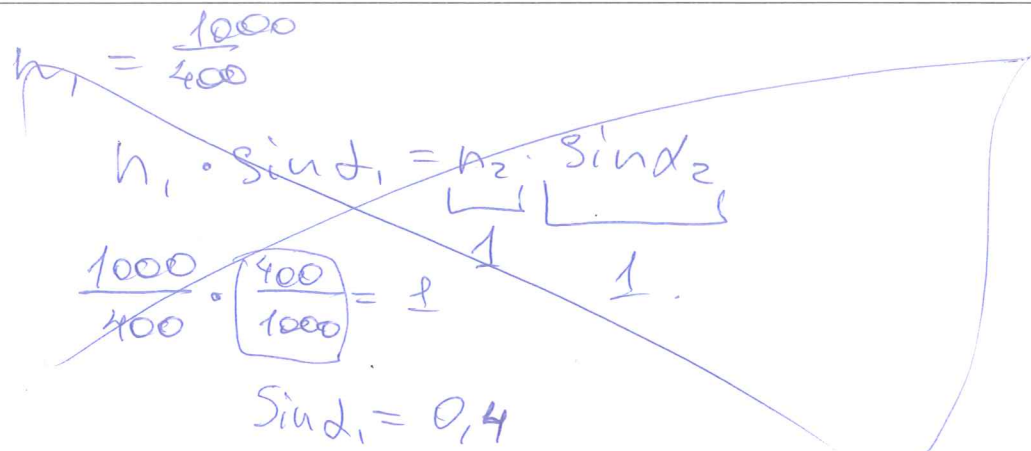 n₁ = 1000/400
n₁ · sinα₁ = n₂ · sinα₂
1 1.
1000/400 · 400/1000 = 1
sinα₁ = 0,4